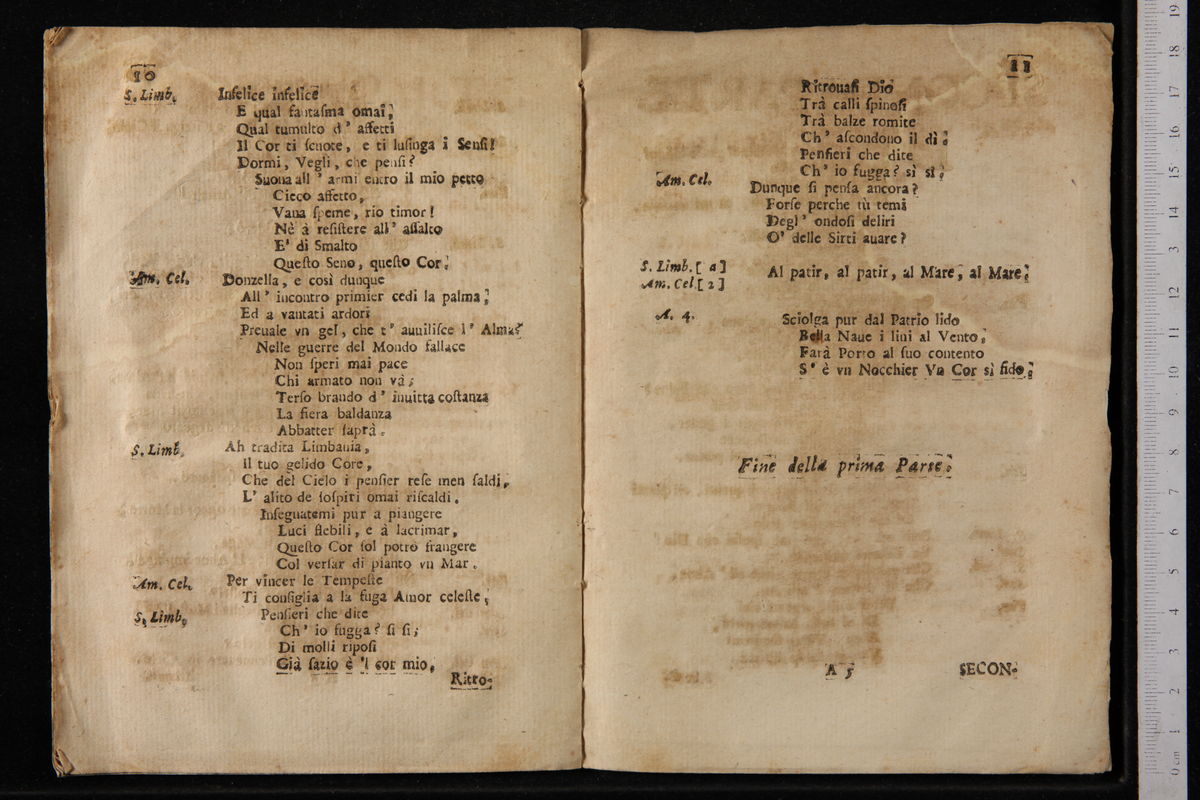 10
S. Limb. Infelice infelice
E qual fantaſma omai;
Qual tumulto d' affetti
Il Cor ti ſcuote, e ti luſinga i Senſi!
Dormi, Vegli, che penſi?
Suona all' armi entro il mio petto
Cieco affetto,
Vana ſpeme, rio timor!
Nè à reſiſtere all' aſſalto
E' di Smalto
Queſto Seno, queſto Cor.
Am. Cel. Donzella, e così dunque
All' incontro primier cedi la palma;
Ed a vantati ardori
Preuale vn gel, che t' auuiliſce l' Alma?
Nelle guerre del Mondo fallace
Non ſperi mai pace
Chi armato non và;
Terſo brando d' inuitta coſtanza
La fiera baldanza
Abbatter ſaprà.
S. Limb. Ah tradita Limbania,
Il tuo gelido Core,
Che del Cielo i penſier reſe men ſaldi,
L' alito de ſoſpiri omai riſcaldi.
Inſegnatemi pur a piangere
Luci flebili, e à lacrimar,
Queſto Cor ſol potrò frangere
Col verſar di pianto vn Mar.
Am. Cel. Per vincer le Tempeſte
Ti conſiglia a la fuga Amor celeſte,
S. Limb. Penſieri che dite
Ch' io fugga? ſi ſi;
Di molli ripoſi
Già ſazio è 'l cor mio,
Ritro-
11
Ritrouaſi Dio
Trà calli ſpinoſi
Trà balze romite
Ch' aſcondono il dì;
Penſieri che dite
Ch' io fugga? sì sì;
Am. Cel. Dunque ſi penſa ancora?
Forſe perche tù temi
Degl' ondoſi deliri
O' delle Sirti auare?
S. Limb. [ a ]
Am. Cel. [ 2 ] Al patir, al patir, al Mare, al Mare;
A. 4. Sciolga pur dal Patrio lido
Bella Naue i lini al Vento;
Farà Porto al ſuo contento
S' è vn Nocchier Vn Cor sì fido;
Fine della prima Parte.
A 5 SECON-
0 cm 1 2 3 4 5 6 7 8 9 10 11 12 13 14 15 16 17 18 19